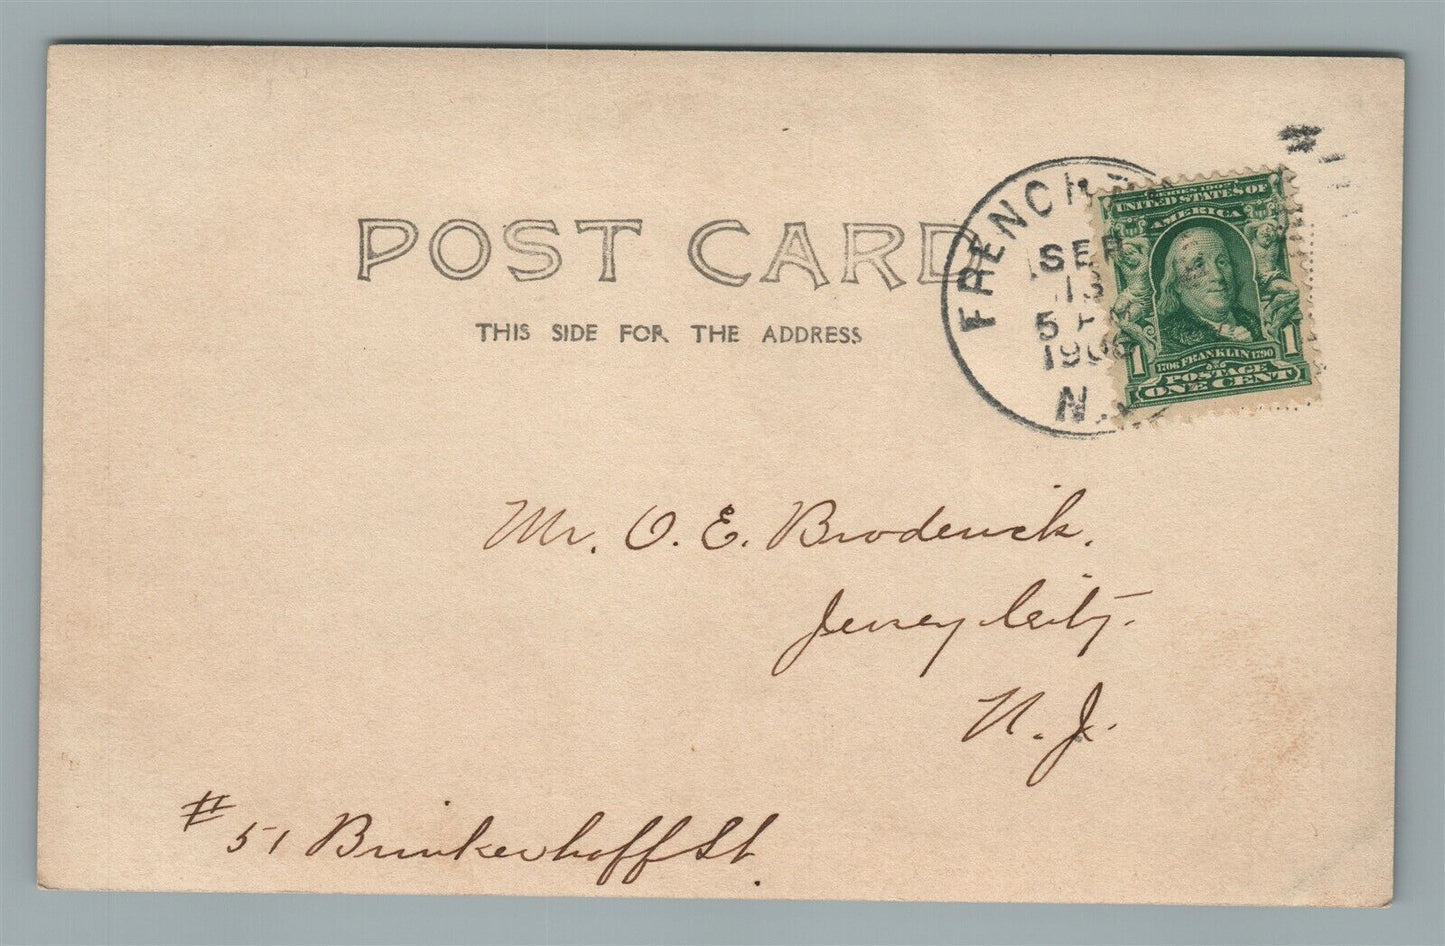 POST CARD
THIS SIDE FOR THE ADDRESS
FRENCH
SEP
13
5 P
1906
N.
SERIES 1902
UNITED STATES OF
AMERICA
1706 FRANKLIN 1790
1 1
POSTAGE
ONE CENT
Mr. O. E. Broderick.
Jersey City.
N. J.
# 51 Brinkerhoff St.